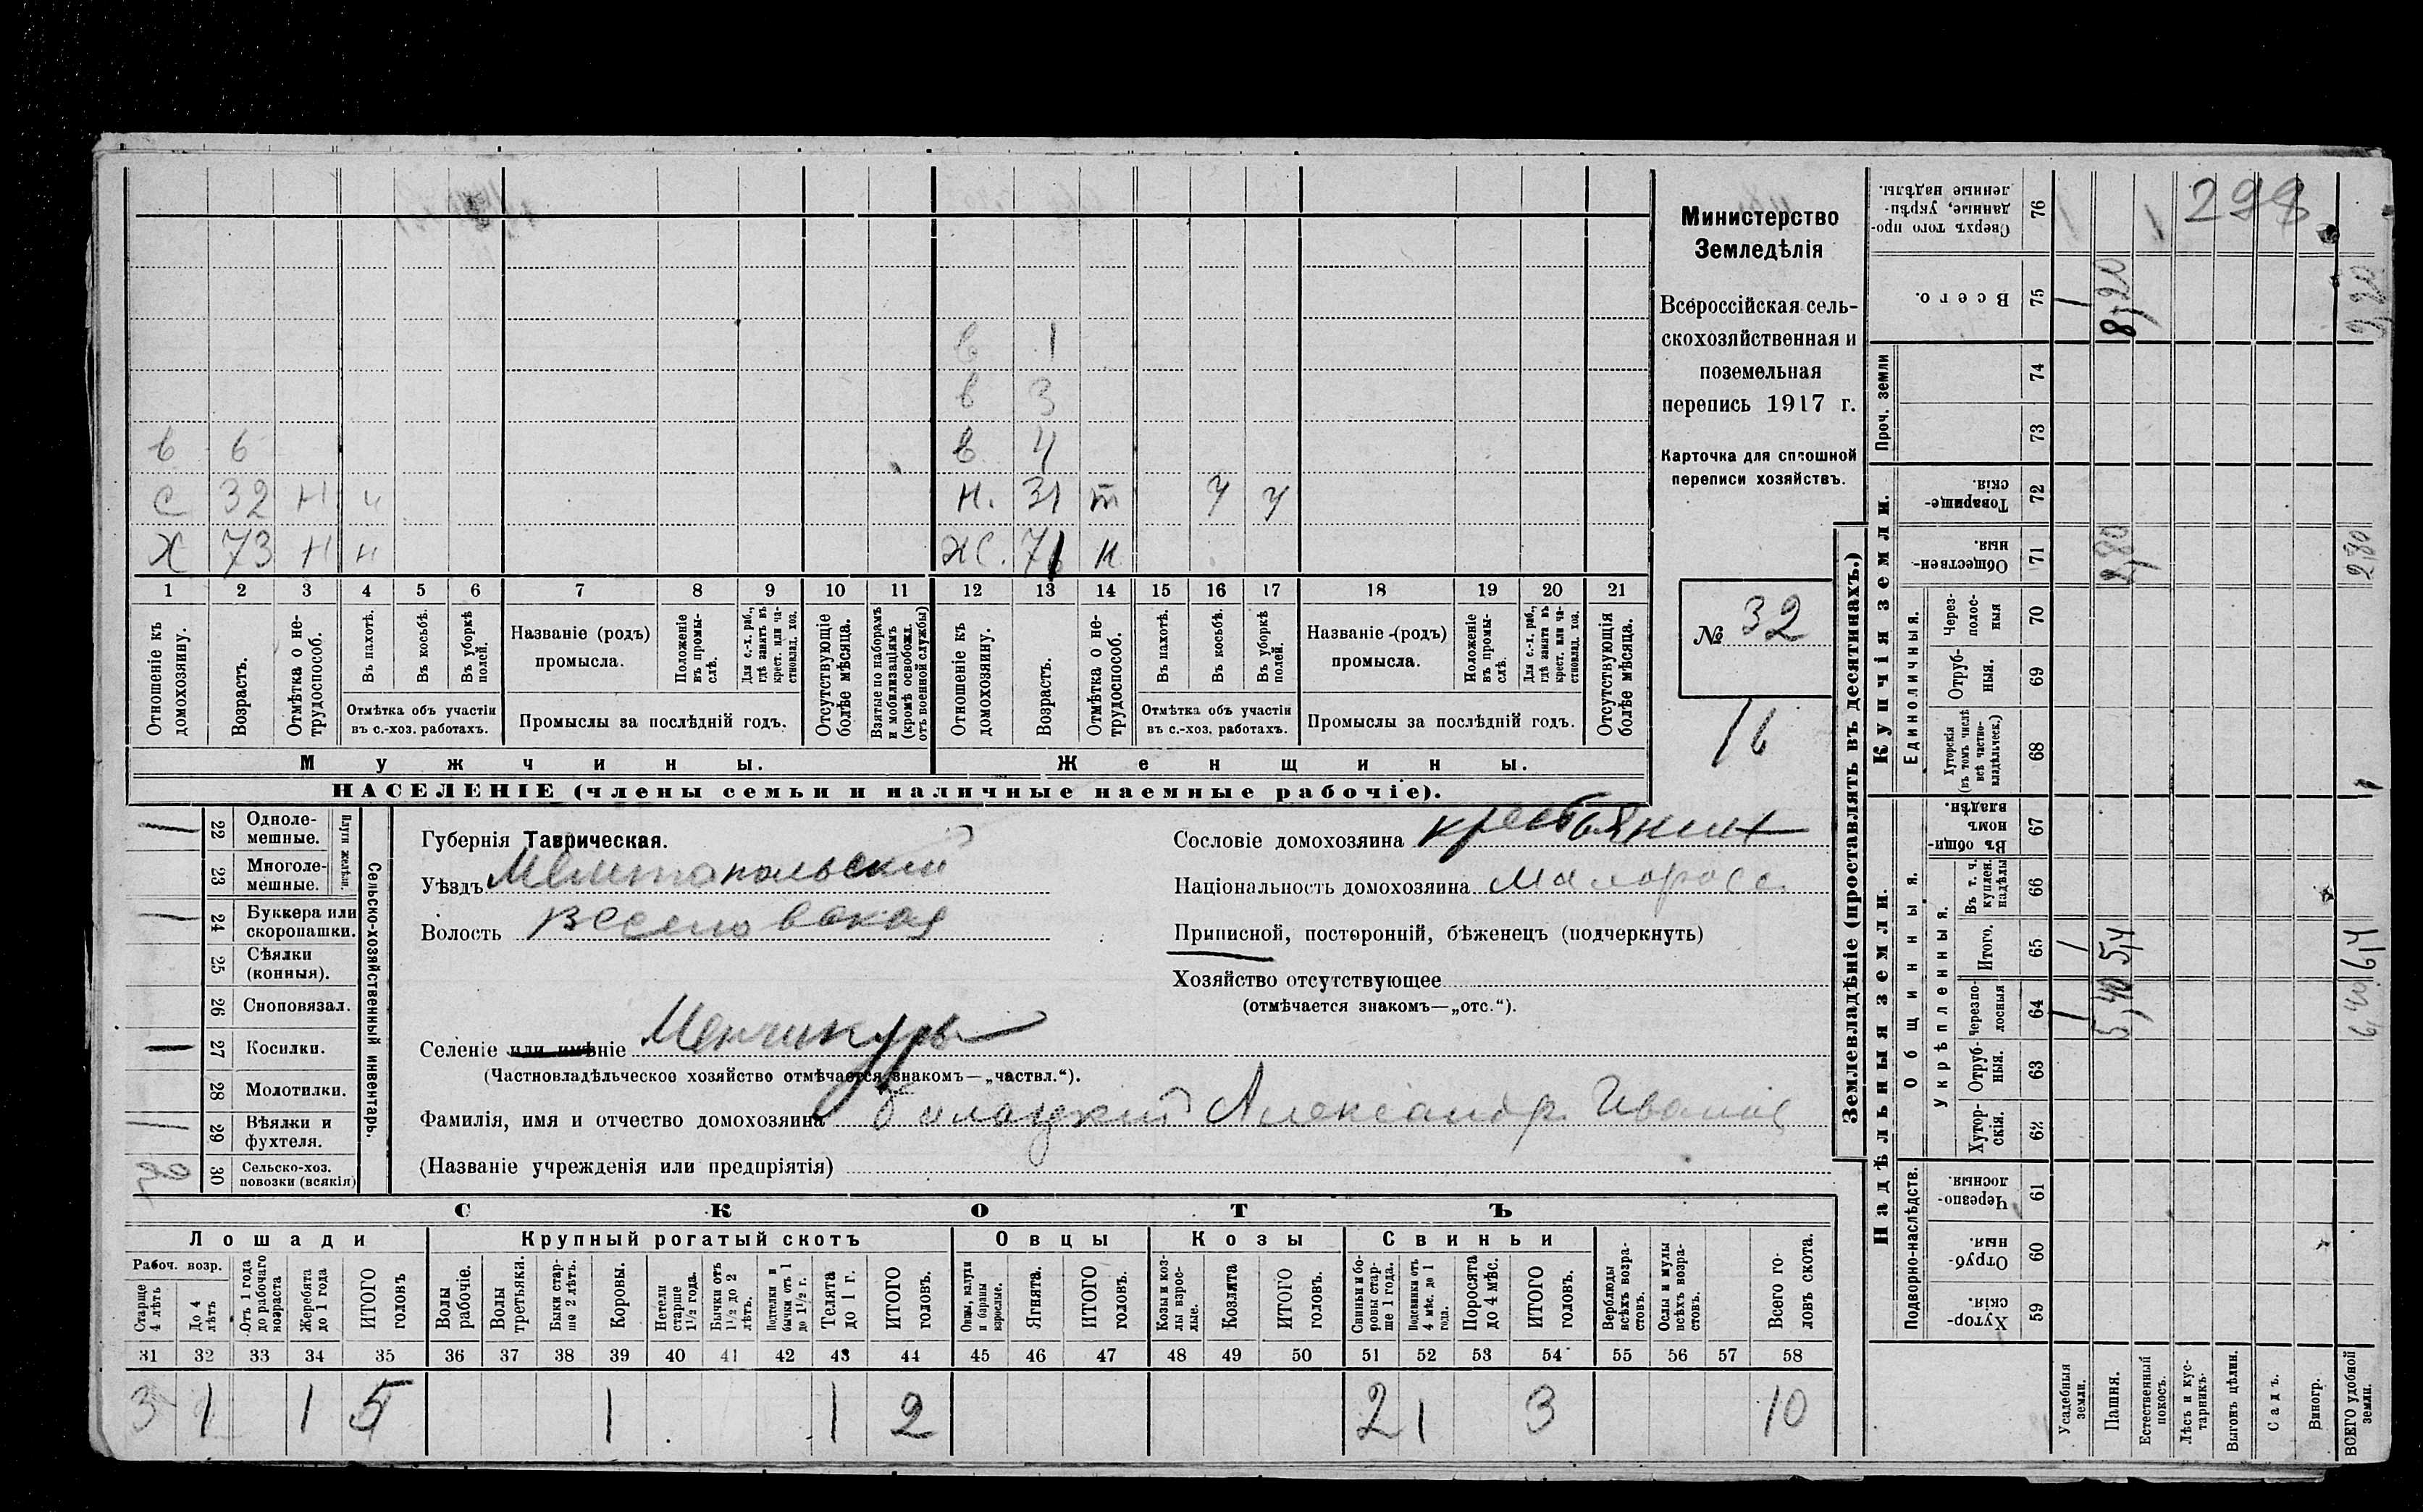 299
в 1
в 3
в 6 в 4
С 32 Н н Н. 31 т У У
Х 73 Н н Ж. 71 н
1 2 3 4 5 6 7 8 9 10 11 12 13 14 15 16 17 18 19 20 21
Отношеніе къ домохозяину.
Возрастъ.
Отмѣтка о не-трудоспособ.
Въ пахотѣ.
Въ косьбѣ.
Въ уборкѣ полей.
Отмѣтка объ участіи
въ с.-хоз. работахъ.
Названіе (родъ)
промысла.
Положеніе въ промы-слѣ.
Для с.-х. раб., гдѣ занятъ въ крест. или ча-стновлад. хоз.
Промыслы за послѣдній годъ.
Отсутствующіе болѣе мѣсяца.
Взятые по наборамъ и мобилизаціямъ (кромѣ освобожд. отъ военной службы)
Отношеніе къ домохозяину.
Возрастъ.
Отмѣтка о не-трудоспособ.
Въ пахотѣ.
Въ косьбѣ.
Въ уборкѣ полей.
Отмѣтка объ участіи
въ с.-хоз. работахъ.
Названіе (родъ)
промысла.
Положеніе въ промы-слѣ.
Для с.-х. раб., гдѣ занята въ крест. или ча-стновлад. хоз.
Промыслы за послѣдній годъ.
Отсутствующія болѣе мѣсяца.
Мужчины. Женщины.
НАСЕЛЕНІЕ (члены семьи и наличные наемные рабочіе).
Министерство
Земледѣлія
Всероссійская сель-
скохозяйственная и
поземельная
перепись 1917 г.
Карточка для сплошной
переписи хозяйствъ.
№ 32
16
22 Одноле-мешные.
23 Многоле-мешные.
Плуги желѣзн.
24 Буккера или скоропашки.
25 Сѣялки (конныя).
26 Сноповязал.
27 Косилки.
28 Молотилки.
29 Вѣялки и фухтеля.
30 Сельско-хоз. повозки (всякія)
Сельско-хозяйственный инвентарь.
Губернія Таврическая.
Уѣздъ Мелитопольскій
Волость Веселовская
Селеніе или имѣніе Менчикуры
(Частновладѣльческое хозяйство отмѣчается знакомъ—„частвл.“).
Фамилія, имя и отчество домохозяина Александр Иванов
(Названіе учрежденія или предпріятія)
Сословіе домохозяина крестьянин
Національность домохозяина малоросс
Приписной, посторонній, бѣженецъ (подчеркнуть)
Хозяйство отсутствующее
(отмѣчается знакомъ—„отс.“).
СКОТЪ
Лошади Крупный рогатый скотъ Овцы Козы Свиньи
Рабоч. возр.
Старше 4 лѣтъ
До 4 лѣтъ
Отъ 1 года до рабочаго возраста
Жеребята до 1 года
ИТОГО головъ
Волы рабочіе.
Волы третьяки.
Быки стар-ше 2 лѣтъ.
Коровы.
Нетели старше 1½ года.
Бычки отъ 1½ до 2 лѣтъ.
Подтелки и бычки отъ 1 до 1½ г.
Телята до 1 г.
ИТОГО головъ.
Овцы, валухи и бараны взрослые.
Ягнята.
ИТОГО головъ.
Козы и коз-лы взрос-лые.
Козлята
ИТОГО головъ.
Свиньи и бо-ровы стар-ше 1 года.
Подсвинки отъ 4 мѣс. до 1 года.
Поросята до 4 мѣс.
ИТОГО головъ.
Верблюды всѣхъ возра-стовъ.
Ослы и мулы всѣхъ возра-стовъ.
Всего го-ловъ скота.
31 32 33 34 35 36 37 38 39 40 41 42 43 44 45 46 47 48 49 50 51 52 53 54 55 56 57 58
3 1 1 5 1 1 2 2 1 3 10
Землевладѣніе (проставлять въ десятинахъ.)
Надѣльныя земли.
Купчія земли.
Проч. земли
Подворно-наслѣдств.
Общинныя.
Укрѣпленныя.
Единоличныя.
Сверхъ того про-данные, укрѣп-ленные надѣлы. 76
Всего. 75 8,20
74
73
Товарище-скія. 72
Обществен-ныя. 71 2,80 2,80
Через-полос-ныя 70
Отруб-ныя. 69
Хуторскія (въ томъ числѣ всѣ частно-владѣльческ.) 68
Въ общин-номъ владѣн. 67
Въ т. ч. куплен. надѣлы 66
Итого. 65 5,4 6,4
Черезпо-лосныя 64 5,40 6,40
Отруб-ныя. 63
Хутор-скія. 62
Черезпо-лосныя. 61
Отруб-ныя. 60
Хутор-скія. 59
Усадебныя земли.
Пашня.
Естественный покосъ.
Лѣсъ и кус-тарникъ.
Выгонъ цѣлин.
Садъ.
Виногр.
ВСЕГО удобной земли.